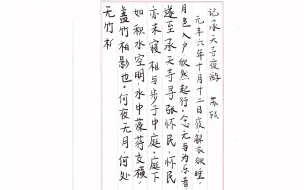 记承天寺夜游 苏轼
元丰六年十月十二日夜,解衣欲睡,
月色入户,欣然起行。念无与为乐者,
遂至承天寺寻张怀民。怀民
亦未寝,相与步于中庭。庭下
如积水空明,水中藻荇交横,
盖竹柏影也。何夜无月,何处
无竹